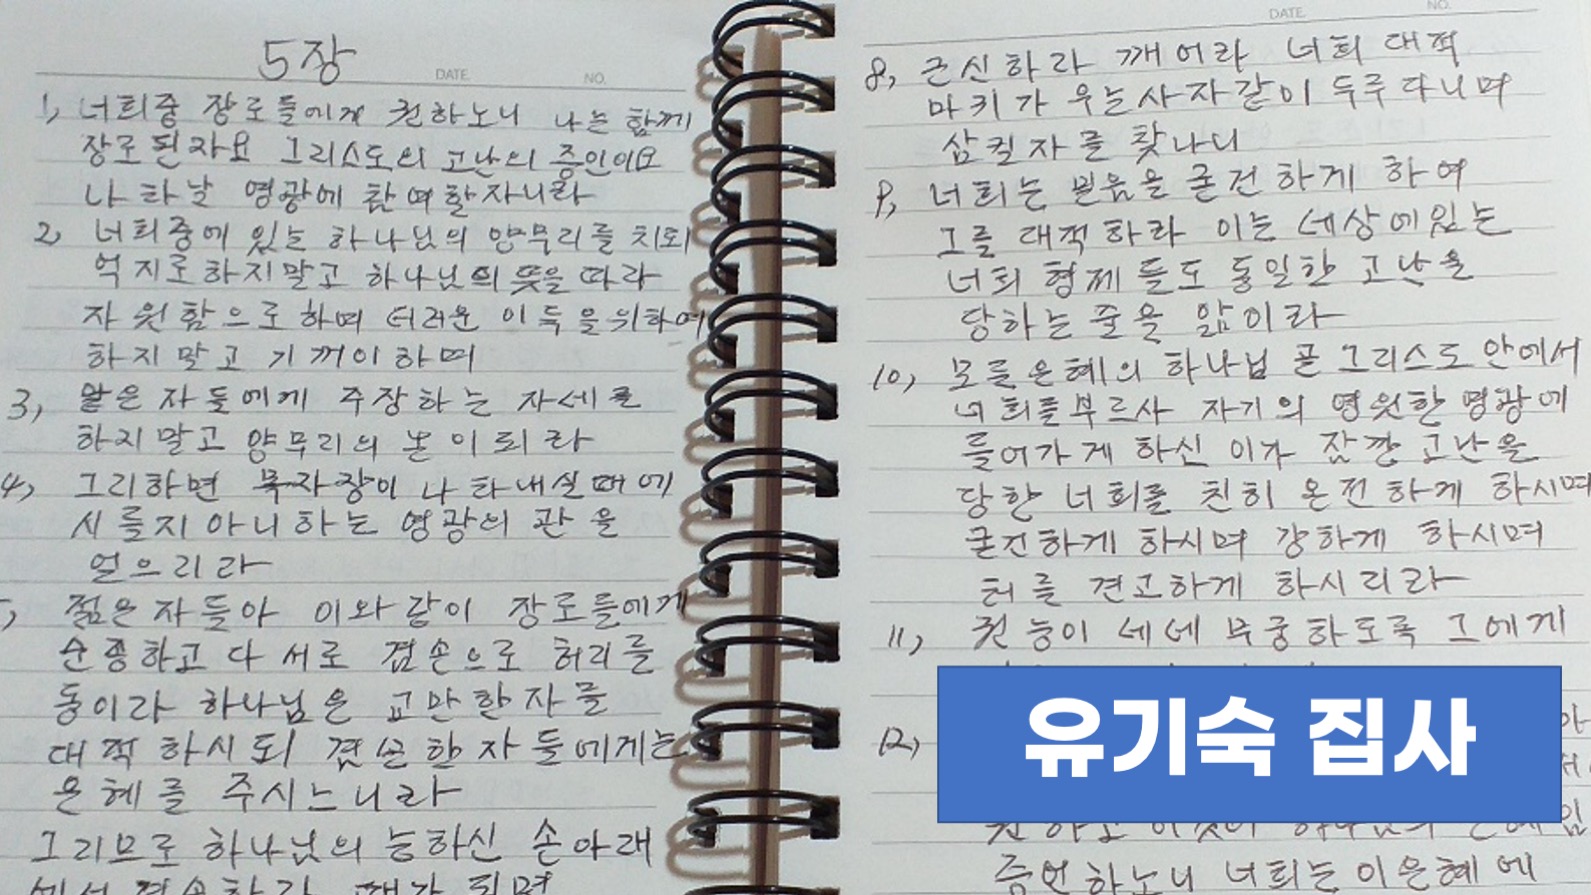 5장
DATE NO.
1, 너희중 장로들에게 권하노니 나는 함께
장로된자요 그리스도의 고난의 증인이요
나타날 영광에 참여할자니라
2, 너희중에 있는 하나님의 양무리를 치되
억지로하지말고 하나님의 뜻을 따라
자원함으로하며 더러운 이득을위하여
하지말고 기꺼이하며
3, 맡은 자들에게 주장하는 자세를
하지말고 양무리의 본이되라
4, 그리하면 목자장이 나타내실때에
시들지아니하는 영광의 관을
얻으리라
젊은자들아 이와같이 장로들에게
순종하고 다 서로 겸손으로 허리를
동이라 하나님은 교만한자를
대적하시되 겸손한자들에게는
은혜를 주시느니라
그리므로 하나님의 능하신 손아래
에서 겸손하라 때가 되면
DATE NO.
8, 근신하라 깨어라 너희 대적
마귀가 우는사자같이 두루다니며
삼킬자를 찾나니
9, 너희는 믿음을 굳건하게 하여
그를 대적하라 이는 세상에있는
너희 형제들도 동일한 고난을
당하는줄을 앎이라
10, 모든은혜의 하나님 곧 그리스도안에서
너희를부르사 자기의 영원한영광에
들어가게하신 이가 잠깐 고난을
당한 너희를 친히 온전하게 하시며
굳건하게 하시며 강하게 하시며
터를 견고하게 하시리라
11, 권능이 세세 무궁하도록 그에게
유기숙 집사
12,
증언하노니 너희는 이은혜에